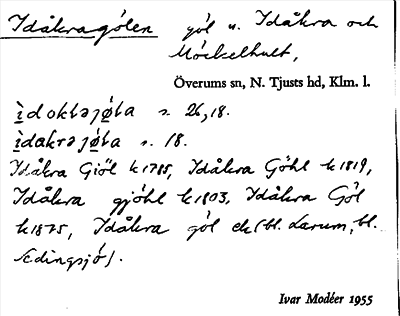 Idåkragölen göl u. Idåkra och
Möckelhult,
Överums sn, N. Tjusts hd, Klm. l.
ìdoktəjø̀ta s. 26, 18.
ìdakrəjø̀ta s. 18.
Idåkra Giöl k 1785, Idåkra Göhl k 1819,
Idåkra gjöhl k 1803, Idåkra Göl
k 1875, Idåkra göl ek (bl. Larum, bl.
Edingsjö).
Ivar Modéer 1955